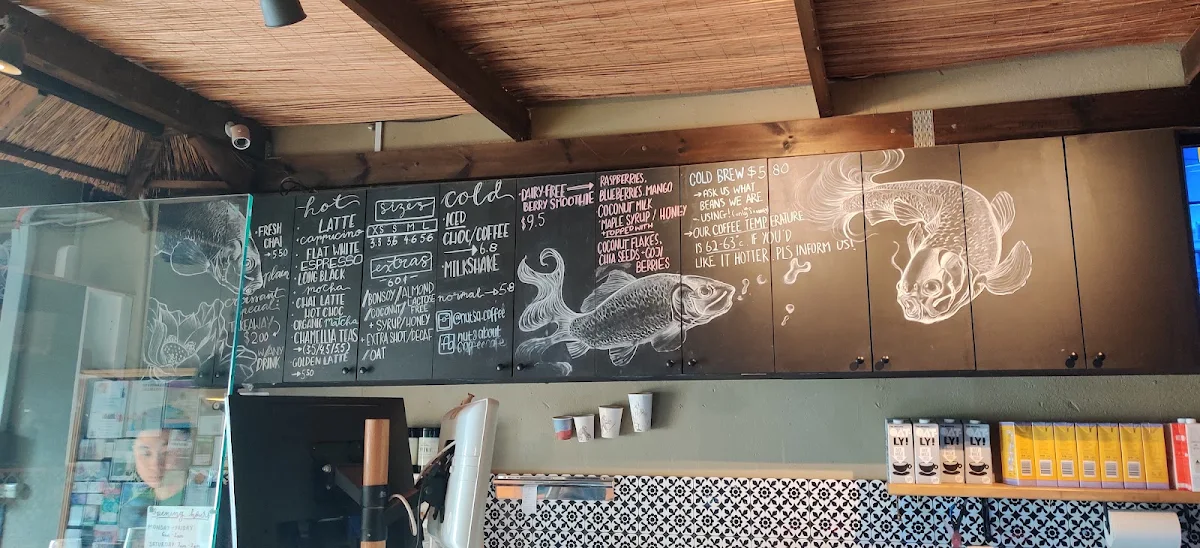 ·FRESH
CHAI
→5.50
plain
croissant
TAKEAWAYS
$2.00
W/ANY
DRINK
hot
LATTE
·cappuccino
·FLAT WHITE
·ESPRESSO
·LONG BLACK
mocha
·CHAI LATTE
HOT CHOC
ORGANIC matcha
CHAMELLIA TEAS
→(3.5/4.5/5.5)
GOLDEN LATTE
→5.50
sizes
XS S M L
3.3 3.8 4.6 5.6
extras
60¢
/BONSOY/ALMOND
/COCONUT/LACTOSE FREE
+ SYRUP/HONEY
+EXTRA SHOT/DECAF
/OAT
cold
·ICED
CHOC/COFFEE
→6.8
·MILKSHAKE
normal→5.8
@nutsa·coffee
nutsabout
coffeecafe
·DAIRY-FREE→
BERRY SMOOTHIE
$9.5
RASPBERRIES,
BLUEBERRIES MANGO
COCONUT MILK
·MAPLE SYRUP / HONEY
+TOPPED WITH
COCONUT FLAKES,
CHIA SEEDS +GOJI
BERRIES
COLD BREW $5.80
→ASK US WHAT
BEANS WE ARE
·USING!
→OUR COFFEE TEMPERNURE
IS 62-63°C IF YOU'D
LIKE IT HOTTER, PLS INFORM US!
LY!
LY!
LY!
LY!
Opening hours
MONDAY-FRIDAY
SATURDAY